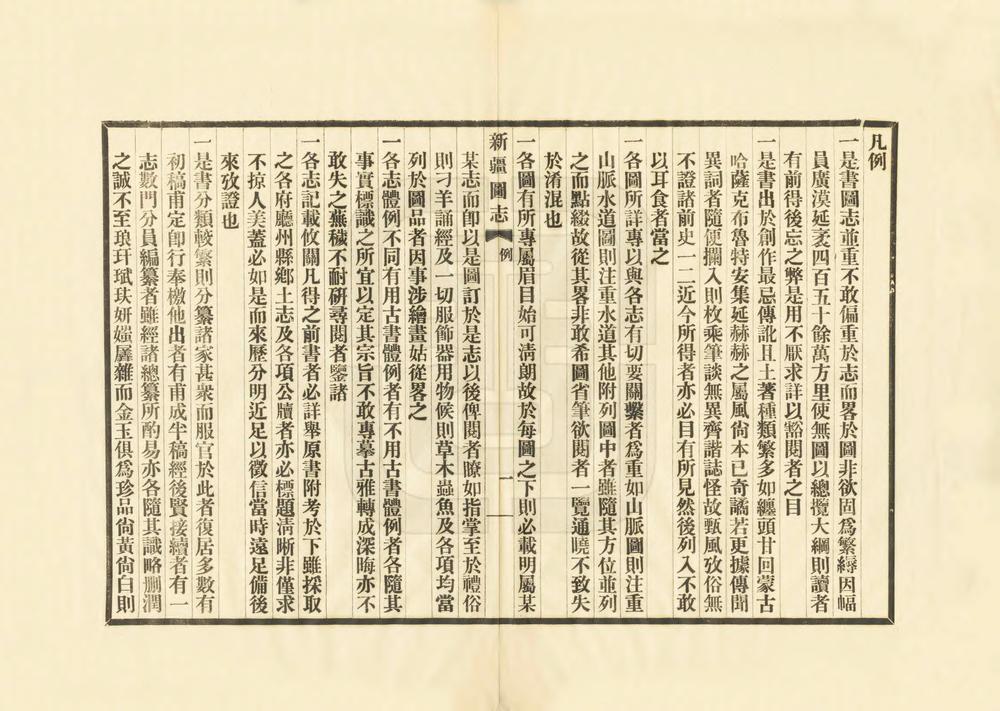 凡例
一是書圖志並重不敢偏重於志而畧於圖非欲固爲繁縟因幅
員廣漠延袤四百五十餘萬方里使無圖以總攬大綱則讀者
有前得後忘之弊是用不厭求詳以豁閱者之目
一是書出於創作最忌傳訛且土著種類繁多如纏頭甘回蒙古
哈薩克布魯特安集延赫赫之屬風尙本已奇譎若更據傳聞
異詞者隨便攔入則枚乘筆談無異齊諧誌怪故甄風攷俗無
不證諸前史一二近今所得者亦必目有所見然後列入不敢
以耳食者當之
一各圖所詳專以與各志有切要關繫者爲重如山脈圖則注重
山脈水道圖則注重水道其他附列圖中者雖隨其方位並列
之而點綴故從其畧非敢希圖省筆欲閱者一覽通曉不致失
於淆混也
一各圖有所專屬眉目始可淸朗故於每圖之下則必載明屬某
新疆圖志 例 一
某志而卽以是圖訂於是志以後俾閱者瞭如指掌至於禮俗
則刁羊誦經及一切服飾器用物候則草木蟲魚及各項均當
列於圖品者因事涉繪畫姑從畧之
一各志體例不同有用古書體例者有不用古書體例者各隨其
事實標識之所宜以定其宗旨不敢專摹古雅轉成深晦亦不
敢失之蕪穢不耐硏尋閱者鑒諸
一各志記載攸關凡得之前書者必詳舉原書附考於下雖採取
之各府廳州縣鄕土志及各項公牘者亦必標題淸晰非僅求
不掠人美蓋必如是而來歷分明近足以徵信當時遠足備後
來攷證也
一是書分類較繁則分纂諸家甚衆而服官於此者復居多數有
初稿甫定卽行奉檄他出者有甫成半稿經後賢接續者有一
志數門分員編纂者雖經諸總纂所酌易亦各隨其識略刪潤
之誠不至琅玕珷玞姸媸厖雜而金玉俱爲珍品尙黃尙白則